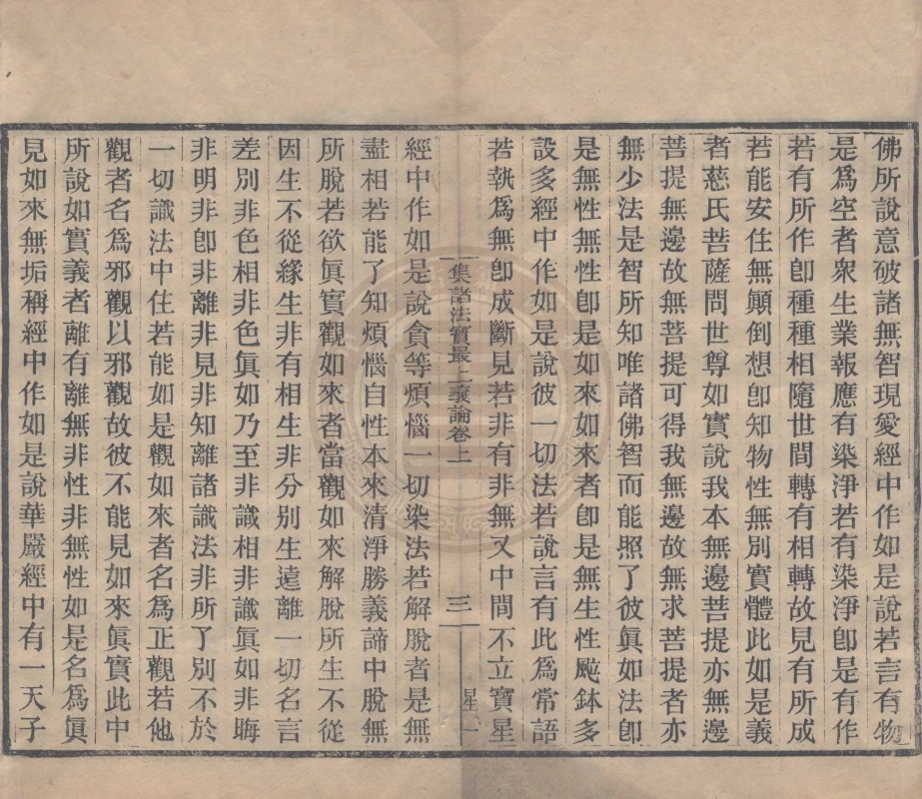 佛所說意破諸無智現愛經中作如是說若言有物
是爲空者衆生業報應有染淨若有染淨卽是有作
若有所作卽種種相隨世間轉有相轉故見有所成
若能安住無顚倒想卽知物性無別實體此如是義
者慈氏菩薩問世尊如實說我本無邊菩提亦無邊
菩提無邊故無菩提可得我無邊故無求菩提者亦
無少法是智所知唯諸佛智而能照了彼眞如法卽
是無性無性卽是如來如來者卽是無生性颰鉢多
設多經中作如是說彼一切法若說言有此爲常語
若執爲無卽成斷見若非有非無又中間不立寶星
集諸法寶最上義論卷上
三
星一
經中作如是說貪等煩惱一切染法若解脫者是無
盡相若能了知煩惱自性本來清淨勝義諦中脫無
所脫若欲眞實觀如來者當觀如來解脫所生不從
因生不從緣生非有相生非分別生遠離一切名言
差別非色相非色眞如乃至非識相非識眞如非晦
非明非卽非離非見非知離諸識法非所了別不於
一切識法中住若能如是觀如來者名爲正觀若他
觀者名爲邪觀以邪觀故彼不能見如來眞實此中
所說如實義者離有離無非性非無性如是名爲眞
見如來無垢稱經中作如是說華嚴經中有一天子